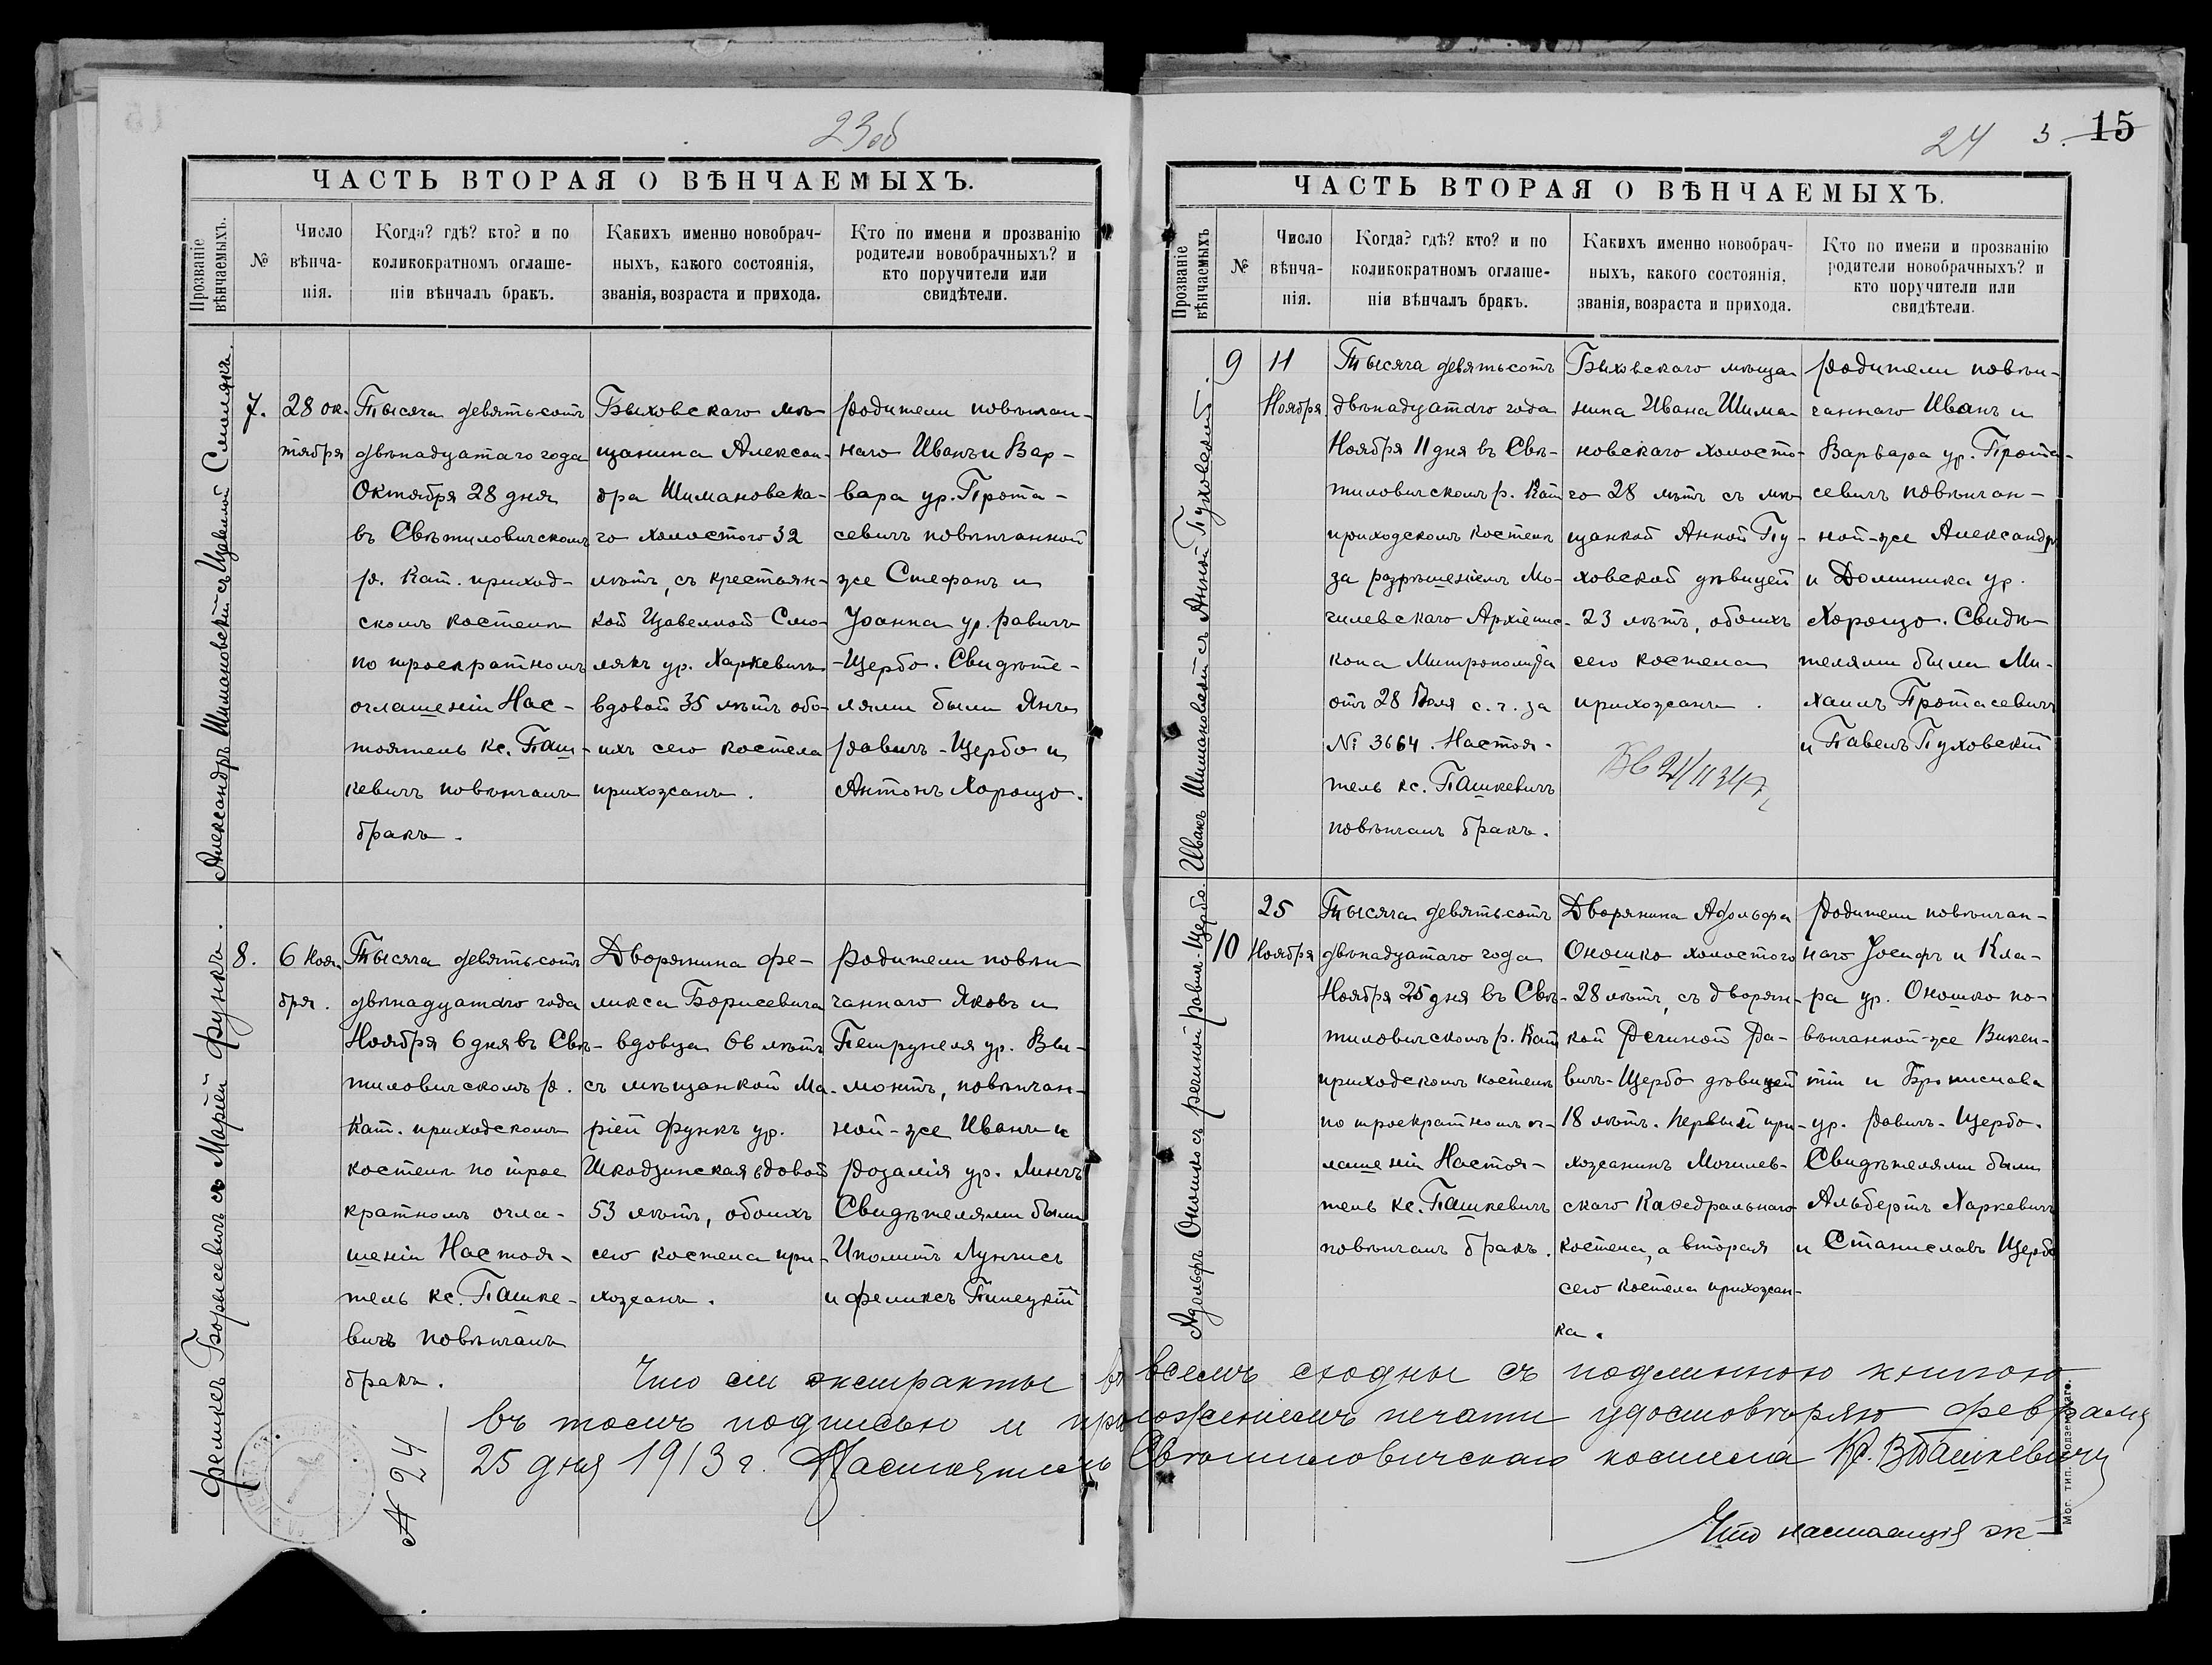 23об
ЧАСТЬ ВТОРАЯ О ВѢНЧАЕМЫХЪ.
Прозваніе вѣнчаемыхъ.
№
Число
вѣнча-
нія.
Когда? гдѣ? кто? и по
коликократномъ оглаше-
ніи вѣнчалъ бракъ.
Какихъ именно новобрач-
ныхъ, какого состоянія,
званія, возраста и прихода.
Кто по имени и прозванію
родители новобрачныхъ? и
кто поручители или
свидѣтели.
Александръ Шимановскій съ Щавелной Смолякъ.
7.
28 ок-
тября
Тысяча девятьсотъ
двѣнадцатаго года
Октября 28 дня
въ Свѣтиловичскомъ
р. Кат. приход-
скомъ костелѣ
по троекратномъ
оглашеніи Нас-
тоятель кс. Паш-
кевичъ повѣнчалъ
бракъ.
Быховскаго мѣ-
щанина Алексан-
дра Шимановска-
го холостого 32
лѣтъ, съ крестьян-
кой Щавелной Смо-
лякъ ур. Харкевичъ
вдовой 35 лѣтъ обо-
ихъ сего костела
прихожанъ.
родители повѣнчан-
наго Иванъ и Вар-
вара ур. Прота-
севичъ повѣнчанной
же Стефанъ и
Іоанна ур. равичъ
-Щербо. Свидѣте-
лями были Янъ
равичъ-Щербо и
Антонъ Хорощо.
Феликсъ Борисевичъ съ Маріей Функъ.
8.
6 Ноя-
бря.
Тысяча девятьсотъ
двѣнадцатаго года
Ноября 6 дня въ Свѣ-
тиловичскомъ р.
Кат. приходскомъ
костелѣ по трое
кратномъ огла-
шеніи Настоя-
тель кс. Пашке-
вичъ повѣнчалъ
бракъ.
Дворянина Фе-
ликса Борисевича
вдовца 66 лѣтъ
съ мѣщанкой Ма-
ріей Функъ ур.
Шкодзинская вдовой
53 лѣтъ, обоихъ
сего костела при-
хожанъ.
родители повѣн-
чаннаго Яковъ и
Петрунеля ур. Вы-
монтъ, повѣнчан-
ной-же Иванъ и
розалія ур. Линчъ
Свидѣтелями были
Иполитъ Лунчисъ
и Феликсъ Пилецкій
24
3. 15
ЧАСТЬ ВТОРАЯ О ВѢНЧАЕМЫХЪ.
Прозваніе вѣнчаемыхъ
№
Число
вѣнча-
нія.
Когда? гдѣ? кто? и по
коликократномъ оглаше-
ніи вѣнчалъ бракъ.
Какихъ именно новобрач-
ныхъ, какого состоянія,
званія, возраста и прихода.
Кто по имени и прозванію
родители новобрачныхъ? и
кто поручители или
свидѣтели.
Иванъ Шимановскій съ Анной Пуховской.
9
11
Ноября
Тысяча девятьсотъ
двѣнадцатаго года
Ноября 11 дня въ Свѣ-
тиловичскомъ р. Кат
приходскомъ костелѣ
за разрѣшеніемъ Мо-
гилевскаго Архіепис-
копа Митрополита
отъ 28 Іюля с. г. за
№ 3664. Настоя-
тель кс. Пашкевичъ
повѣнчалъ бракъ.
Быховскаго мѣща-
нина Ивана Шима-
новскаго холосто-
го 28 лѣтъ съ мѣ-
щанкой Анной Пу-
ховской дѣвицей
23 лѣтъ, обоихъ
сего костела
прихожанъ.
родители повѣн-
чаннаго Иванъ и
Варвара ур. Прота-
севичъ повѣнчан-
ной-же Александръ
и Доминика ур.
Хорощо. Свидѣ-
телями были Ми-
хаилъ Протасевичъ
и Павелъ Пуховскій
Адольфъ Оношко съ речиной равич-Щербо.
10
25
Ноября
Тысяча девятьсотъ
двѣнадцатаго года
Ноября 25 дня въ Свѣ-
тиловичскомъ р. Кат
приходскомъ костелѣ
по троекратномъ ог-
лашеніи Настоя-
тель кс. Пашкевичъ
повѣнчалъ бракъ.
Дворянина Адольфа
Оношко холостого
28 лѣтъ, съ дворян-
кой Речиной Ра-
вичъ-Щербо дѣвицей
18 лѣтъ. Первый при-
хожанинъ Могилев-
скаго Каѳедральнаго
костела, а вторая
сего костела прихожан-
ка.
родители повѣнчан-
наго Іосифъ и Кла-
ра ур. Оношко по-
вѣнчанной-же Викен-
тій и Бронислава
ур. равичъ-Щербо.
Свидѣтелями были
Альбертъ Харкевичъ
и Станиславъ Щербо
Что сіи экстракты во всемъ сходны съ подлинною книгою
въ томъ подписью и приложеніемъ печати удостовѣряю февраля
25 дня 1913 г. Настоятель Свѣтиловичскаго костела Кс. В Пашкевичъ
№ 24
Что настоящія эк-
Мог. тип. Подземскаго.